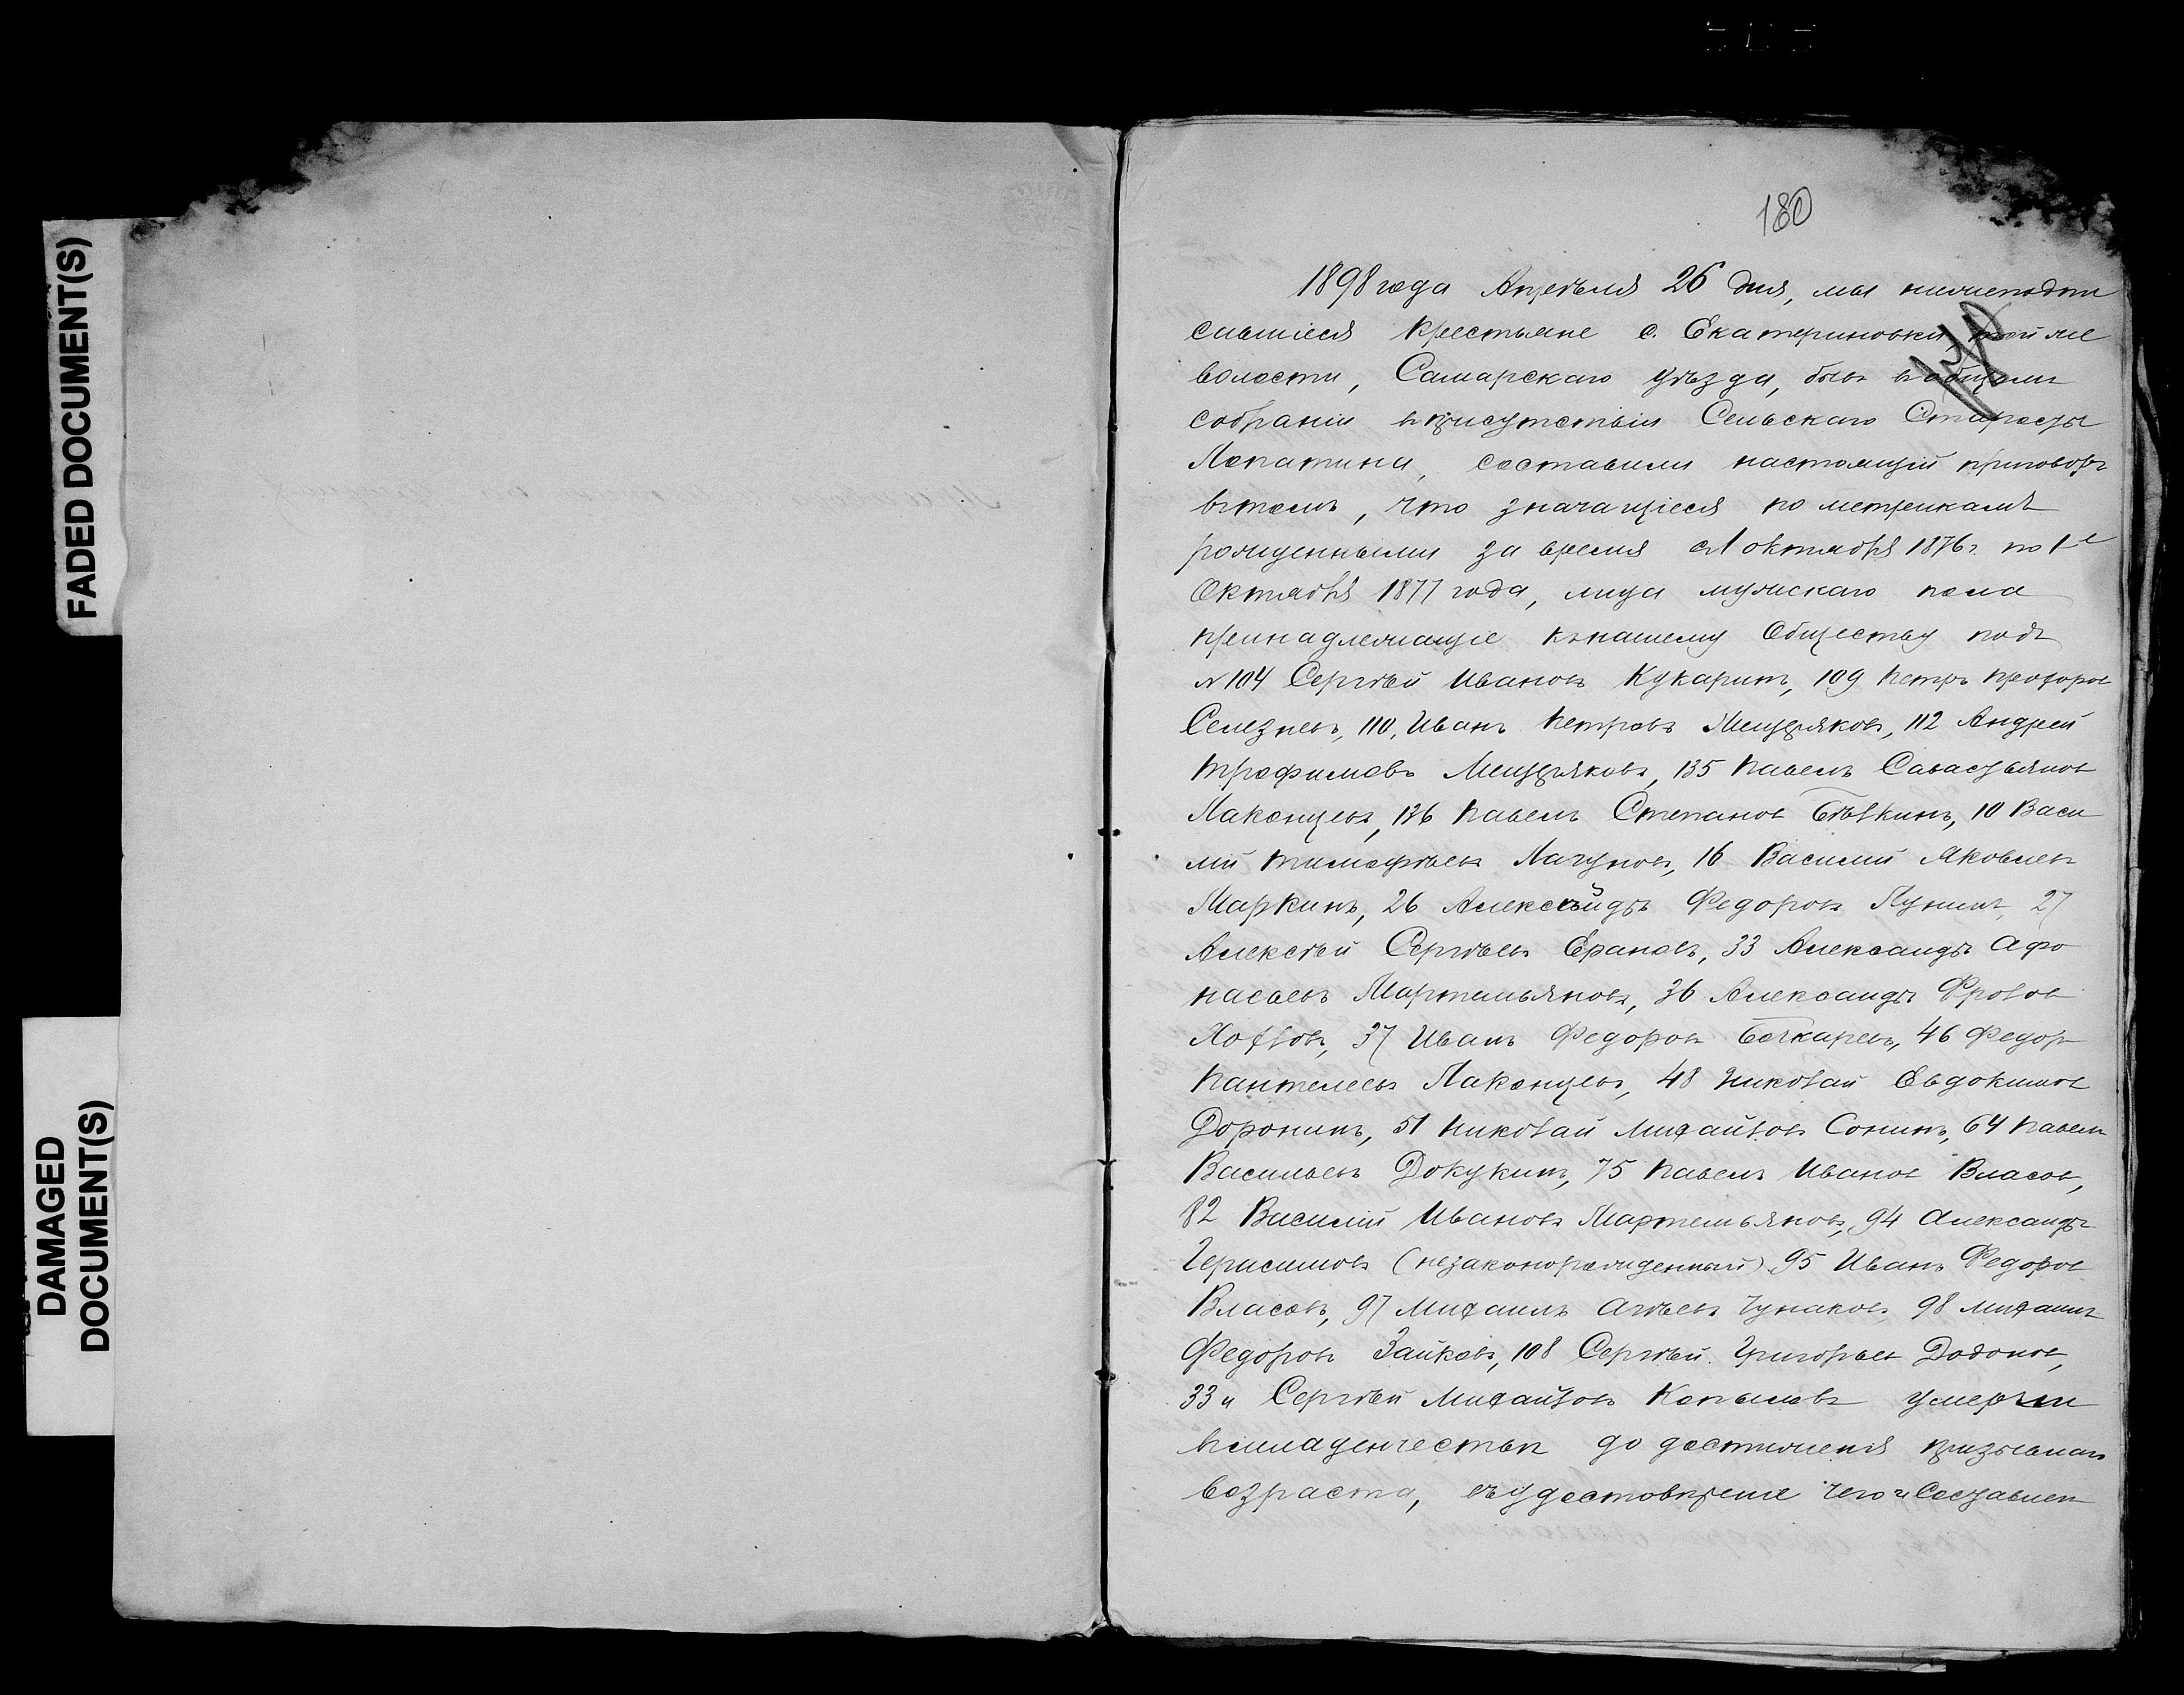 FADED DOCUMENT(S)
DAMAGED
DOCUMENT(S)
180
1898 года Апрѣля 26 дня, мы нижеподпи
савшіеся крестьяне с. Екатериновки, той же
волости, Самарскаго уѣзда, бывъ вобщемъ
собраніи вприсутствіи Сельскаго Старосты
Лопатина, составили настоящій приговоръ
втомъ, что значащіеся по метрикамъ
рожденными за время съ 1 октября 1876 г. по 1е
Октября 1877 года, лица мужскаго пола
принадлежащіе кънашему Обществу подъ
№ 104 Сергѣй Ивановъ Кукаринъ, 109 Петръ Прохоров
Селезневъ, 110, Иванъ Петровъ Мещеряковъ, 112 Андрей
Трофимовъ Мещеряковъ, 135 Павелъ Савастьянов
Лаконцевъ, 136 Павелъ Степанов Бѣлкинъ, 10 Васи
лій Тимофѣевъ Лагуновъ, 16 Василий Яковлевъ
Маркинъ, 26 Федоровъ Лунинъ, 27
Алексѣй Сергѣевъ Ерановъ, 33 Александръ Афо
насьевъ Мартемьяновъ, 36 Александръ Фролов
37 Иванъ Федоровъ Бочкаревъ, 46 Федор
Пантелеевъ Лаконцевъ, 48 Николай Евдокимов
Доронинъ, 51 Николай Михайловъ Сонинъ, 64 Павелъ
Васильевъ Докукинъ, 75 Павелъ Иванов Власов,
82 Василий Ивановъ Мартемьяновъ, 94 Александръ
Герасимовъ (незаконорожденный) 95 Иванъ Федоров
Власовъ, 97 Михаилъ Агѣевъ Чунаковъ, 98 Михаилъ
Федоровъ Зайковъ, 108 Сергѣй Григорьев Додонов,
33 и Сергѣй Михайловъ Копыловъ умерли
вмладенчествѣ до достиженія призывнаго
возраста, въудостовѣреніе чего и Составлен